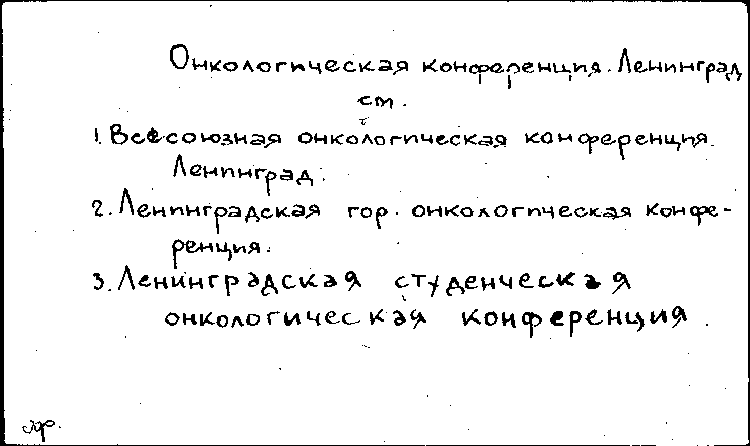 Онкологическая конференция. Ленинград
см.
1. Всесоюзная онкологическая конференция.
Ленинград.
2. Ленинградская гор. онкологическая конфе-
ренция.
3. Ленинградская студенческая
онкологическая конференция.